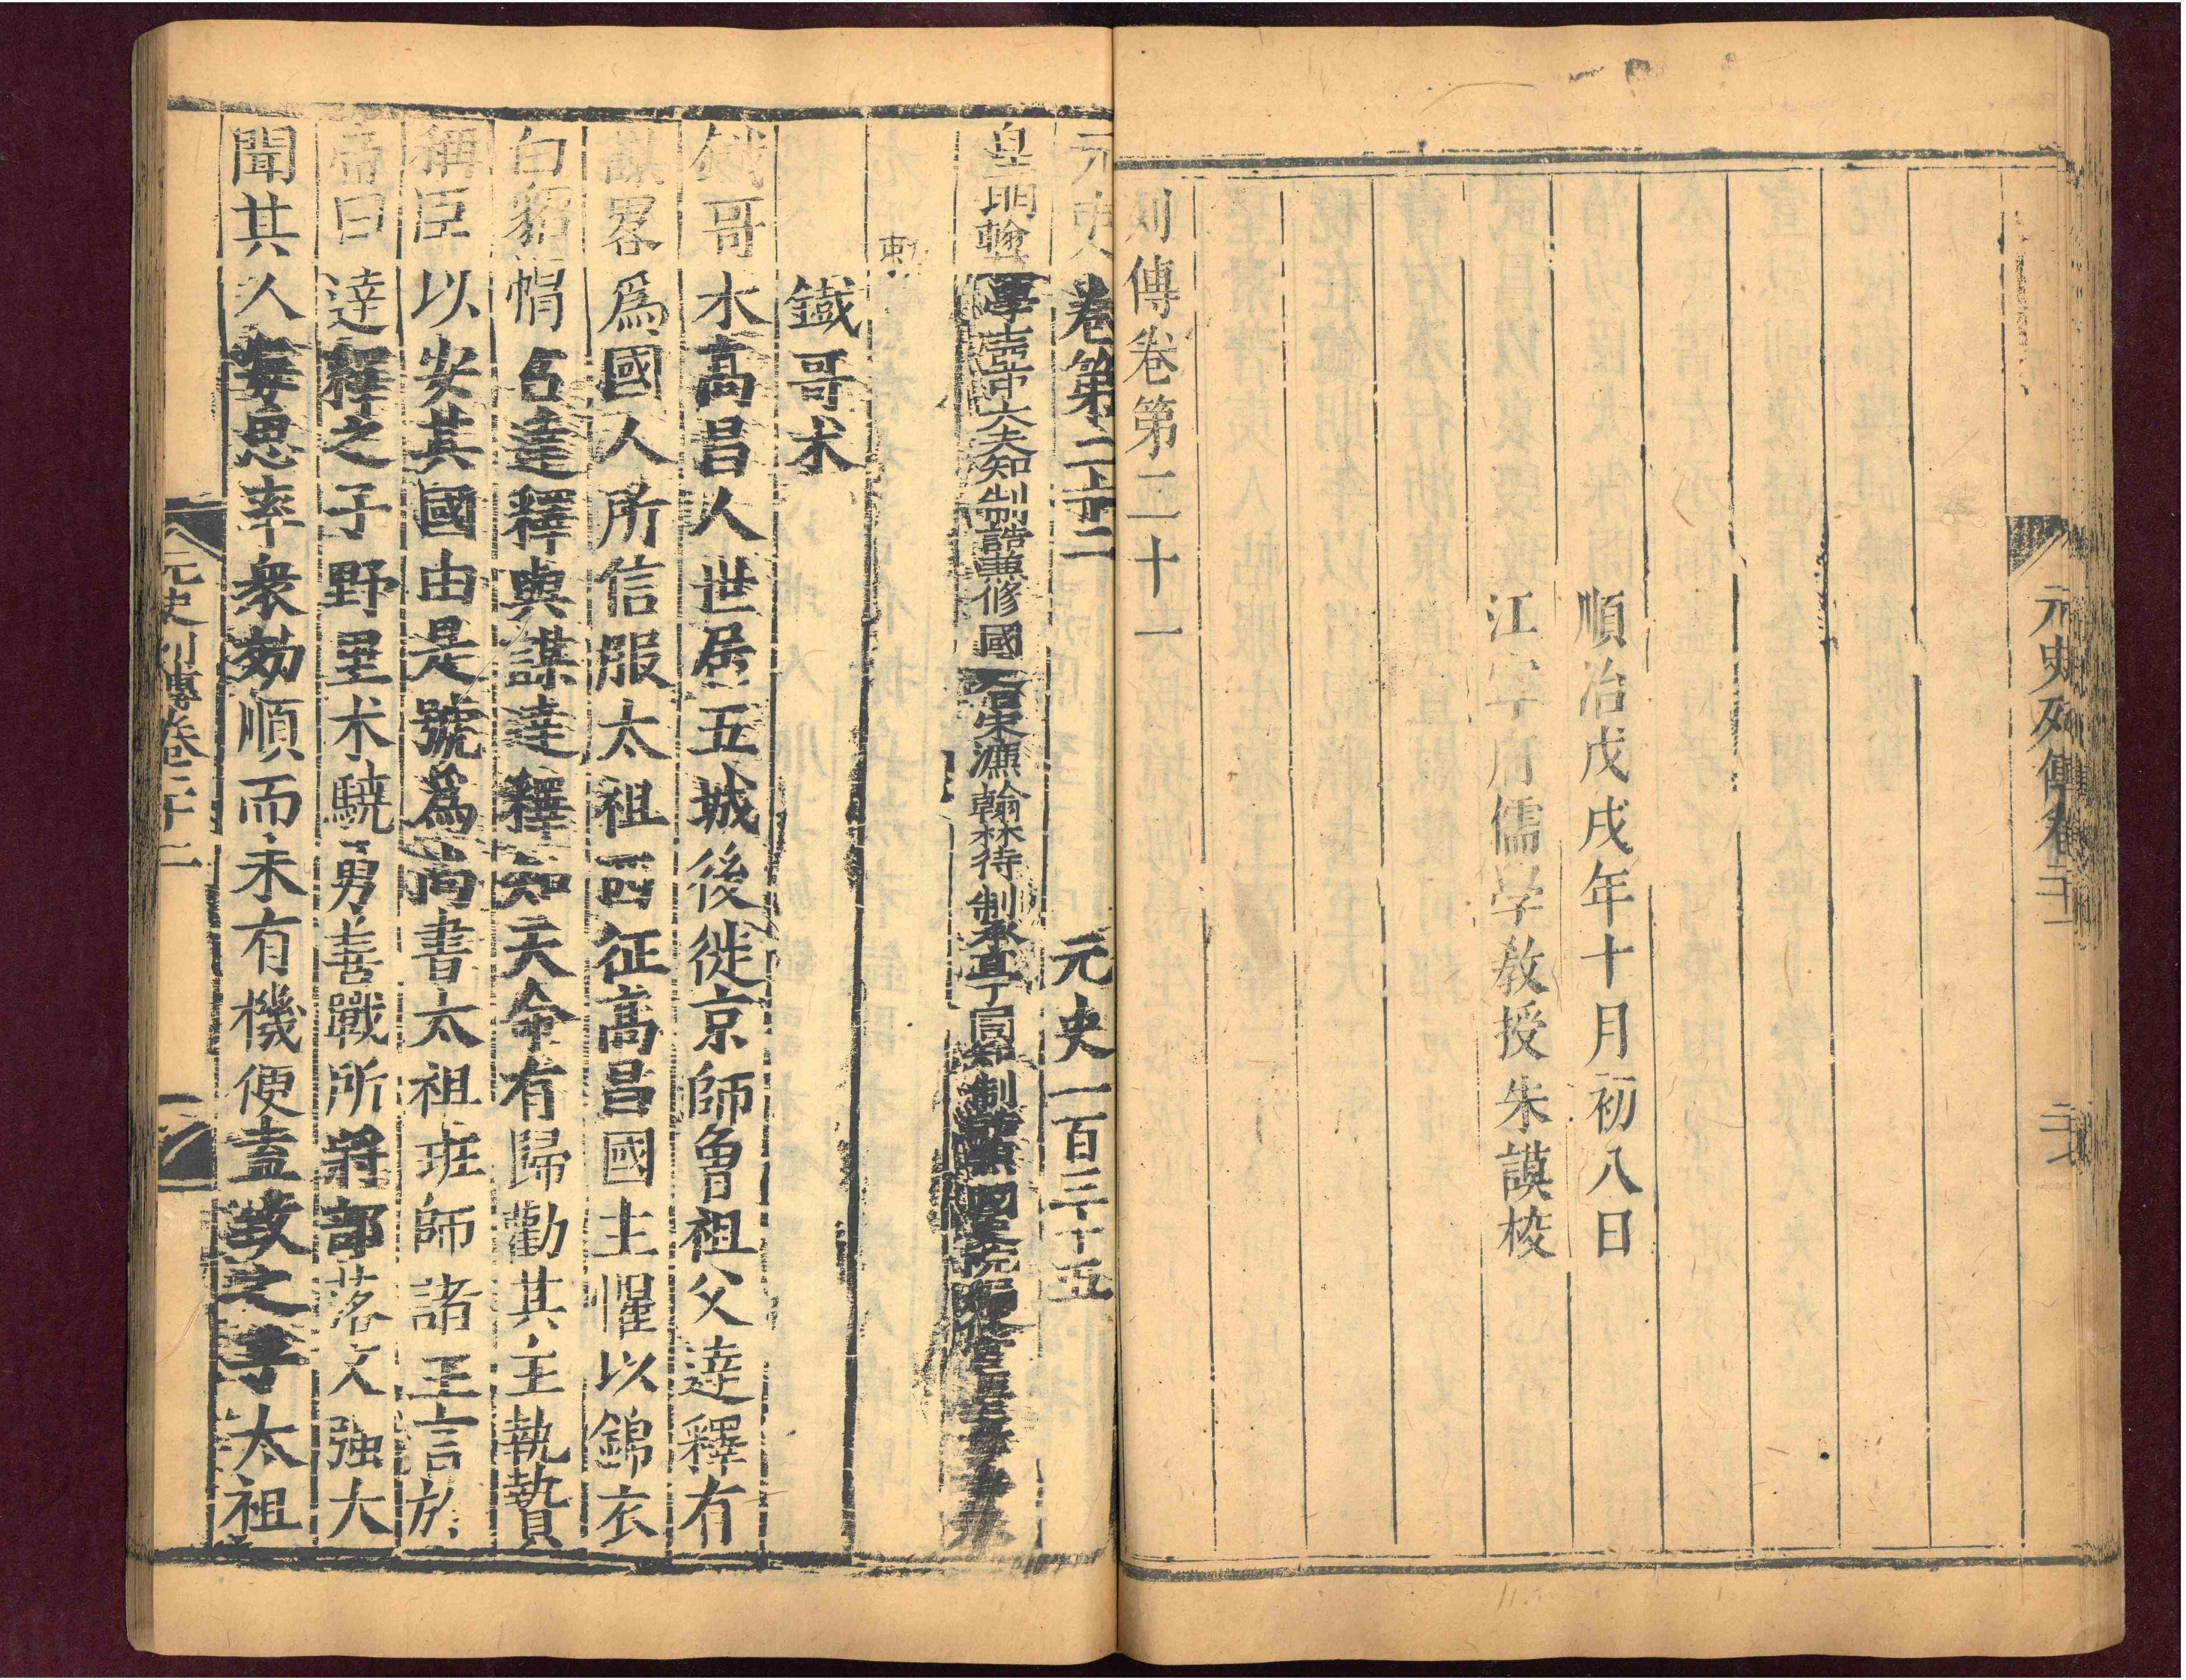 元史列傳卷二十一
二七
順治戊戌年十月初八日
江寧府儒学教授朱謨校
列傳卷第二十一
元史 卷第二十二 元史一百三十五
皇明翰 大夫知制誥兼修國 宋濂翰林待制承直 同知制 國史院編
勅
鐵哥术
鐵哥术高昌人世居五城後徙京師魯祖父達釋有
謀畧爲國人所信服太祖西征高昌國主懼以錦衣
白貂帽召達釋與謀達釋知天命有歸勸其主執贄
稱臣以安其國由是號爲尚書太祖班師諸王言於
帝曰達釋之子野里术驍勇善戰所將部落又强大
聞其人每思率衆効順而未有機便盍致之乎太祖
元史列傳卷二十二
一